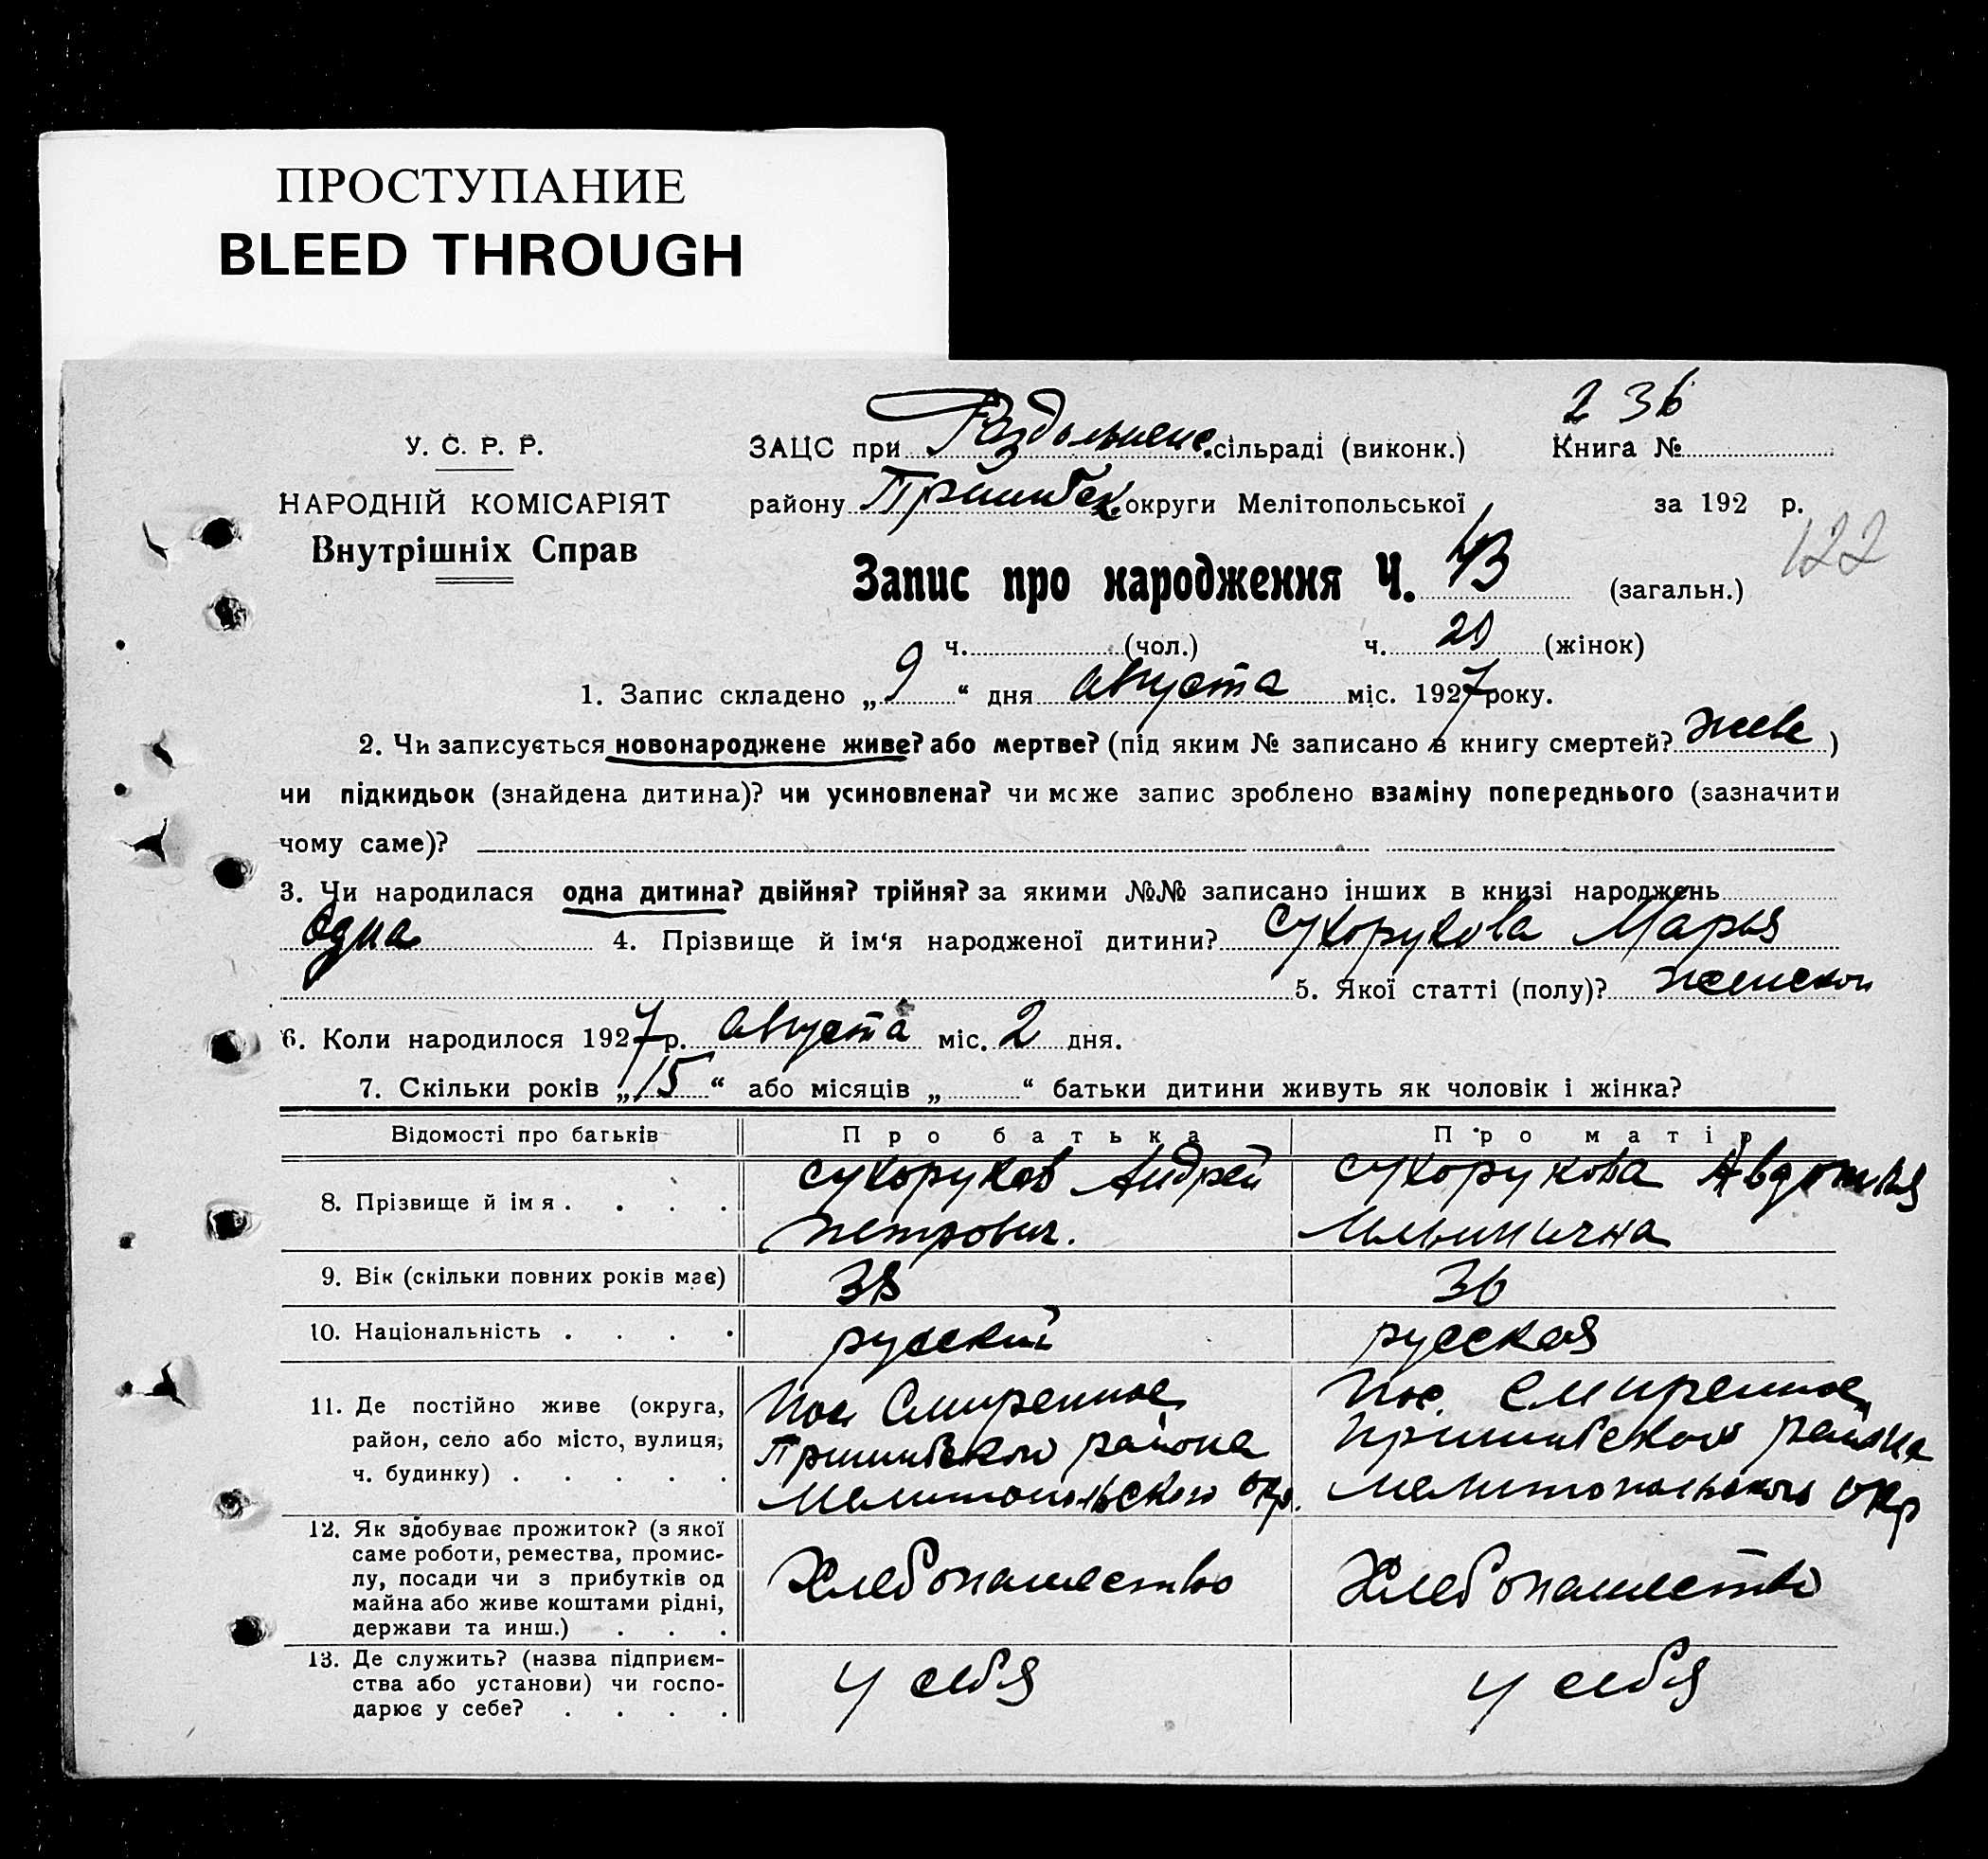 ПРОСТУПАНИЕ
BLEED THROUGH
2 36
У. С. Р. Р.
ЗАЦС при Раздольненс. сільраді (виконк.) Книга №
НАРОДНІЙ КОМІСАРІЯТ
району Пришибск. округи Мелітопольської за 192 р.
Внутрішніх Справ
122
Запис про народження Ч. 43 (загальн.)
ч. (чол.) ч. 20 (жінок)
1. Запис складено „ 9 “ дня августа міс. 1927 року.
2. Чи записується новонароджене живе? або мертве? (під яким № записано в книгу смертей? живе )
чи підкидьок (знайдена дитина)? чи усиновлена? чи може запис зроблено взаміну попереднього (зазначити
чому саме)?
3. Чи народилася одна дитина? двійня? трійня? за якими №№ записано інших в книзі народжень
одна 4. Прізвище й ім‘я народженої дитини? Сухорукова Марья
5. Якої статті (полу)? женскои
6. Коли народилося 1927 р. августа міс. 2 дня.
7. Скільки років „ 15 “ або місяців „ “ батьки дитини живуть як чоловік і жінка?
Відомості про батьків Про батька Про матір
8. Прізвище й ім я . . . . Сухоруков Андрей Сухорукова Авдотья
Петрович. Ильинична
9. Вік (скільки повних років має) 38 36
10. Національність . . . . русский русская
11. Де постійно живе (округа, Пос Смиренное Пос. Смиренное
район, село або місто, вулиця, Пришибского района Пришибского района
ч. будинку) . . . . . Мелитопольского окр. Мелитопольского окр
12. Як здобуває прожиток? (з якої
саме роботи, ремества, промис-
лу, посади чи з прибутків од Хлебопашество Хлебопашество
майна або живе коштами рідні,
держави та инш.) . . .
13. Де служить? (назва підприєм-
ства або установи) чи госпо- у себя у себя
дарює у себе? . . . .